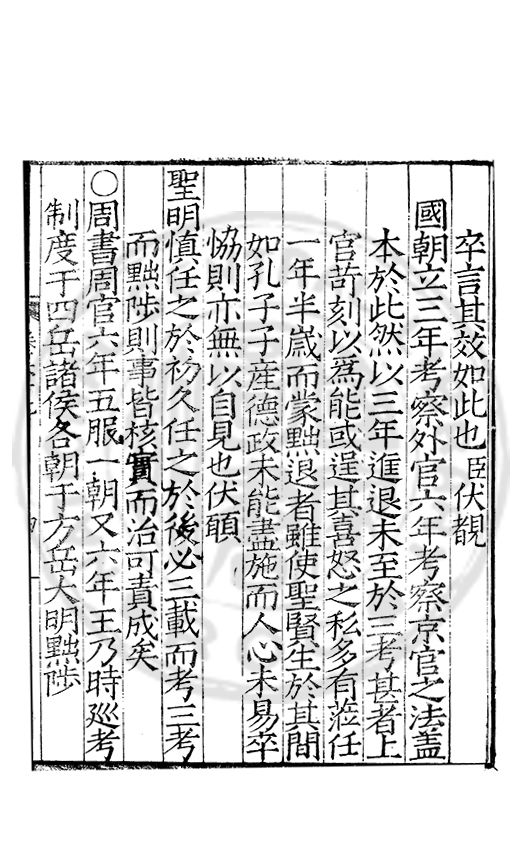 卒言其效如此也臣伏覩
國朝立三年考察外官六年考察京官之法蓋
本於此然以三年進退未至於三考甚者上
官苛刻以為能或逞其喜怒之私多有蒞任
一年半歲而蒙黜退者雖使聖賢生於其間
如孔子子產德政未能盡施而人心未易卒
恊則亦無以自見也伏願
聖明慎任之於初久任之於後必三載而考三考
而黜陟則事皆核實而治可責成矣
〇周書周官六年五服一朝又六年王乃時廵考
制度于四岳諸侯各朝于方岳大明黜陟